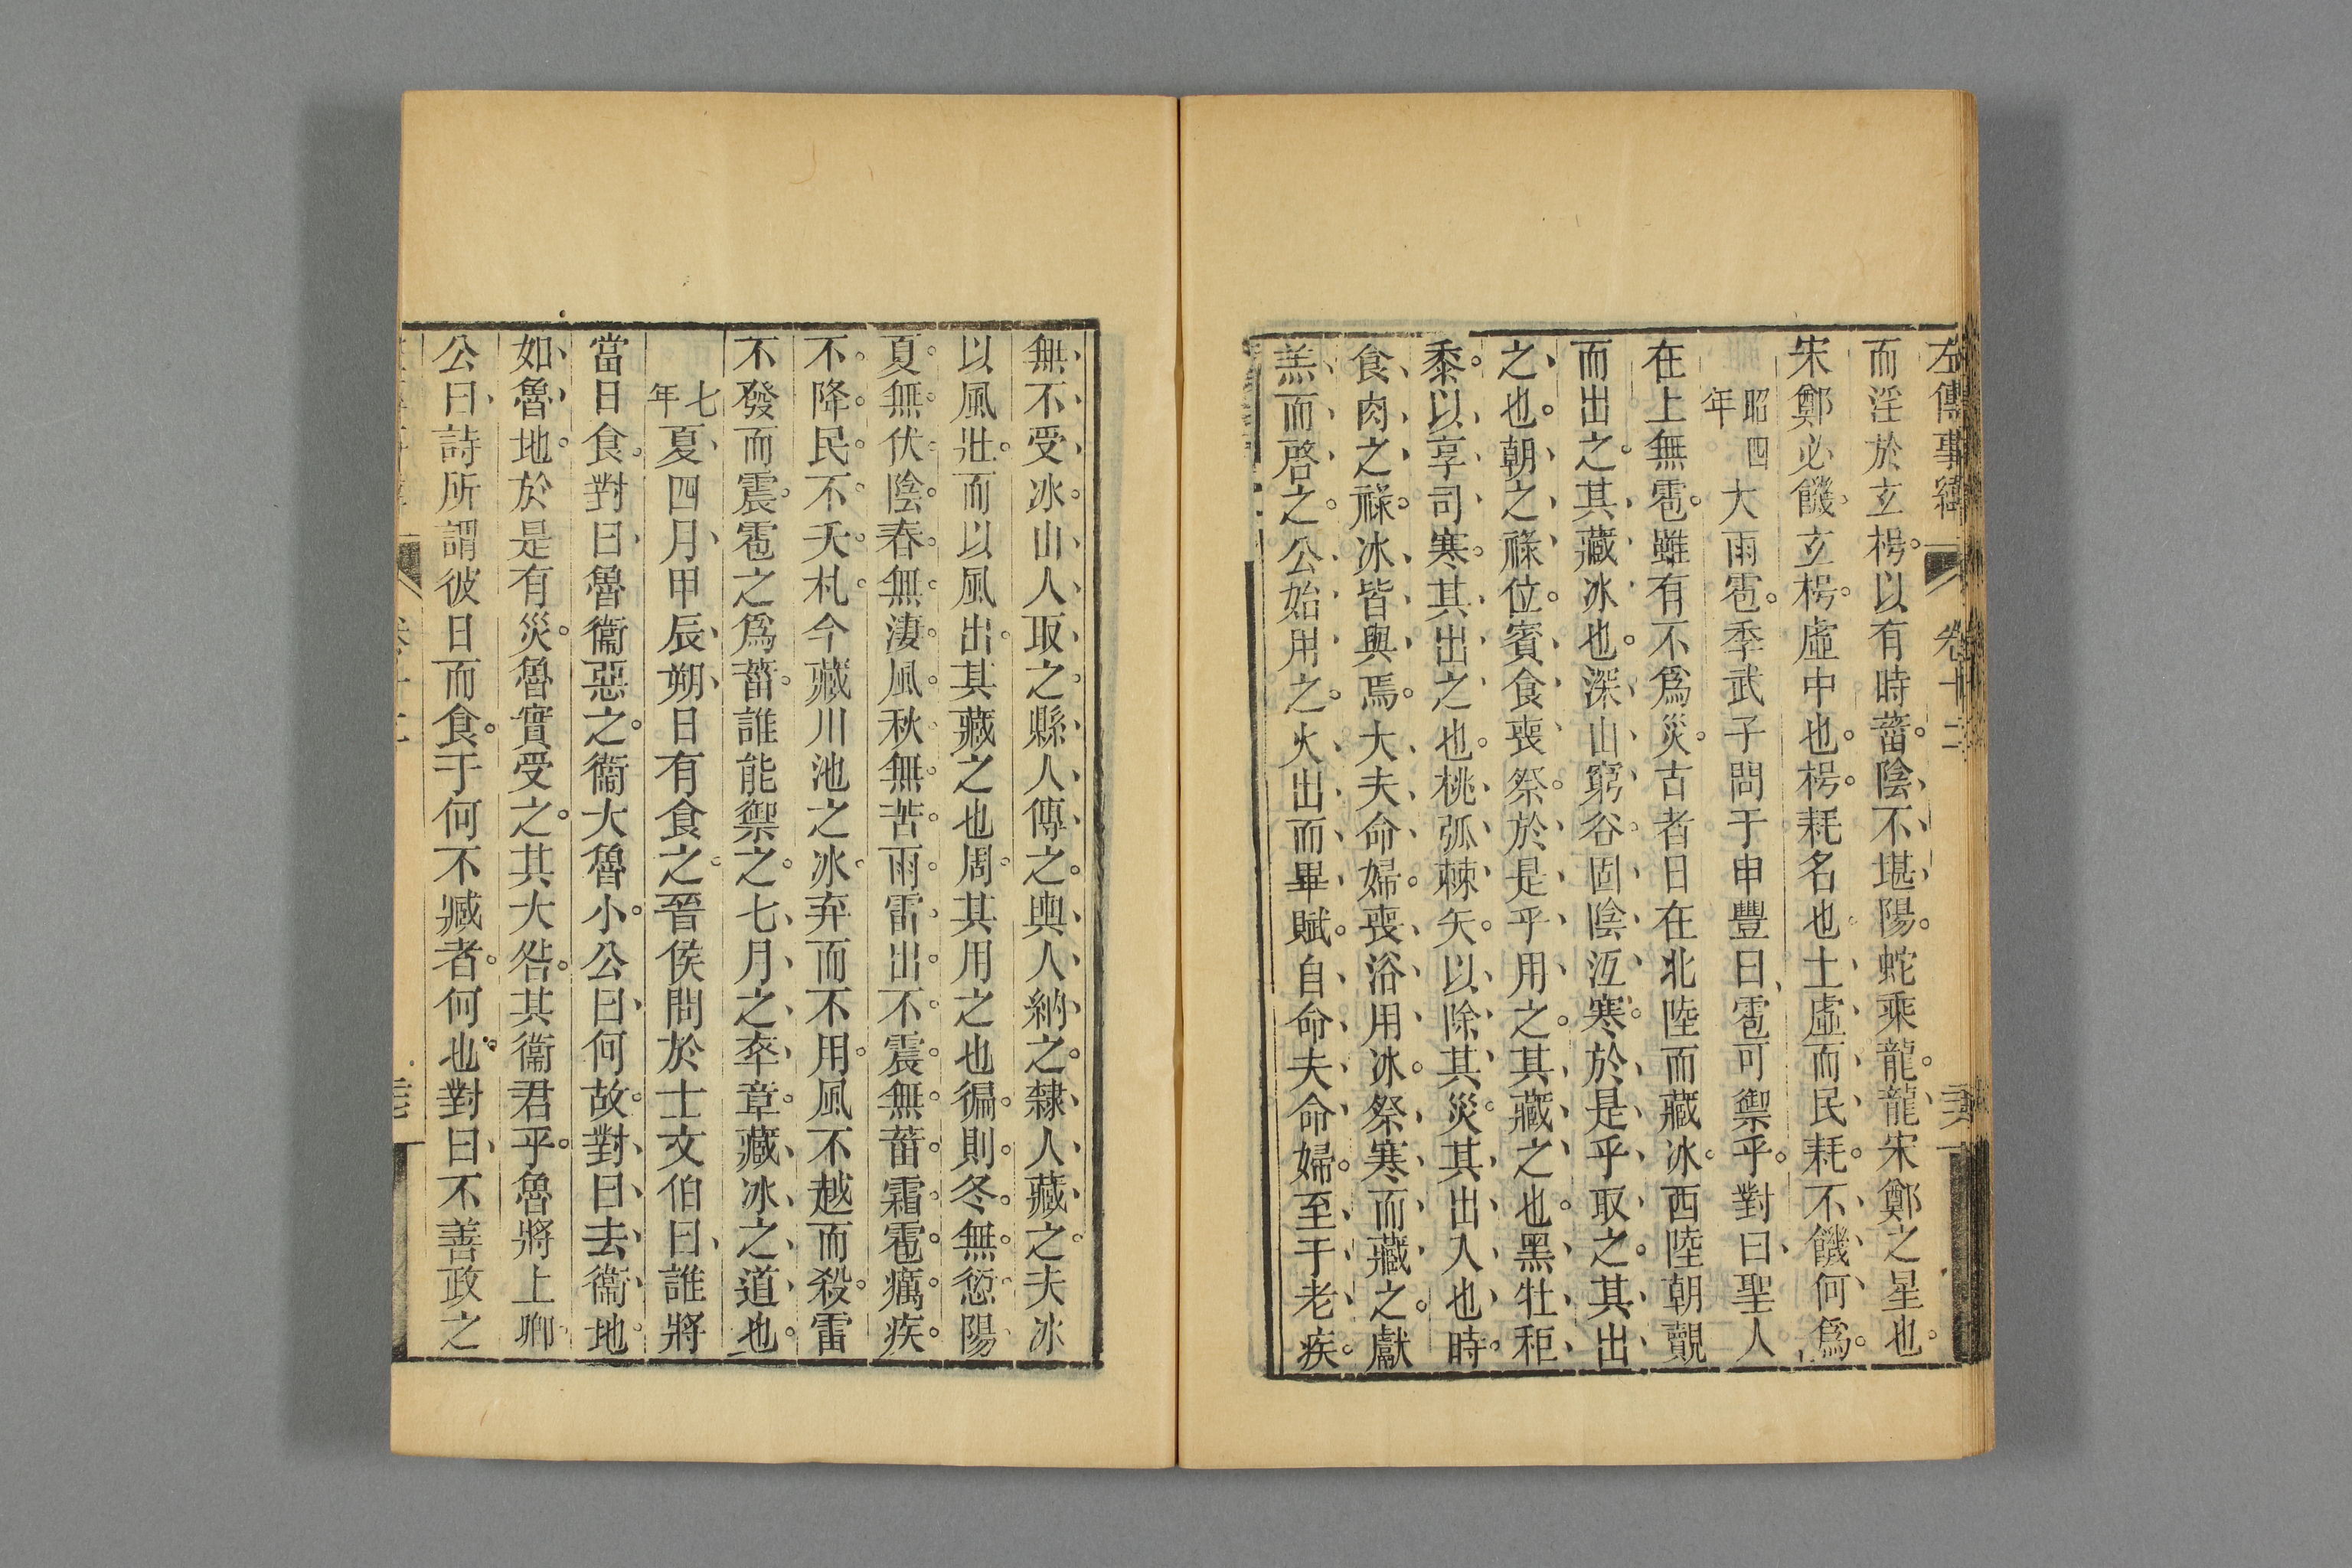 左傳事緯 卷十二
而淫於玄枵。以有時菑。陰、不、堪、陽。蛇乘龍。龍、宋鄭之星也。
宋鄭必饑。玄枵。虛中也。枵。耗名也。土、虛、而、民、耗。不、饑、何、爲。
昭四年 大雨雹。季武子問于申豐曰、雹可禦乎。對曰、聖人
在上無雹。雖有不爲災。古者日在北陸而藏冰。西陸朝覿
而出之。其、藏、冰、也。深、山、窮、谷。固、陰、沍、寒。於、是、乎、取、之。其、出、
之、也。朝、之、祿、位。賓、食、喪、祭。於、是、乎、用、之。其、藏、之、也。黑、牡、秬、
黍。以、享、司、寒。其、出、之、也。桃、弧、棘、矢。以、除、其、災。其、出、入、也、時。
食、肉、之、祿。冰、皆、與、焉。大、夫、命、婦。喪、浴、用、冰。祭、寒、而、藏、之。獻、
羔、而、啓、之。公、始、用、之。火、出、而、畢、賦。自、命、夫、命、婦。至、于、老、疾。
無、不、受、冰。山、人、取、之。縣、人、傳、之。輿、人、納、之。隸、人、藏、之。夫冰
以風壯。而以風出。其藏之也周。其用之也徧。則。冬。無。愆。陽。
夏。無。伏。陰。春。無。淒。風。秋。無。苦。雨。雷。出。不。震。無。菑。霜。雹。癘。疾。
不。降。民。不。夭。札。今藏川池之冰。弃而不用。風不越而殺。雷
不發而震。雹之爲菑。誰能禦之。七、月、之、卒、章。藏、冰、之、道、也。
七年 夏、四月、甲辰、朔、日有食之。晉侯問於士文伯曰、誰將
當日食。對曰、魯衞惡之。衞大魯小。公曰、何故。對、曰、去、衞、地。
如、魯、地。於是有災。魯實受之。其大咎。其衞君乎。魯將上卿。
公曰、詩所謂彼日而食。于何不臧者。何也。對曰、不善政之